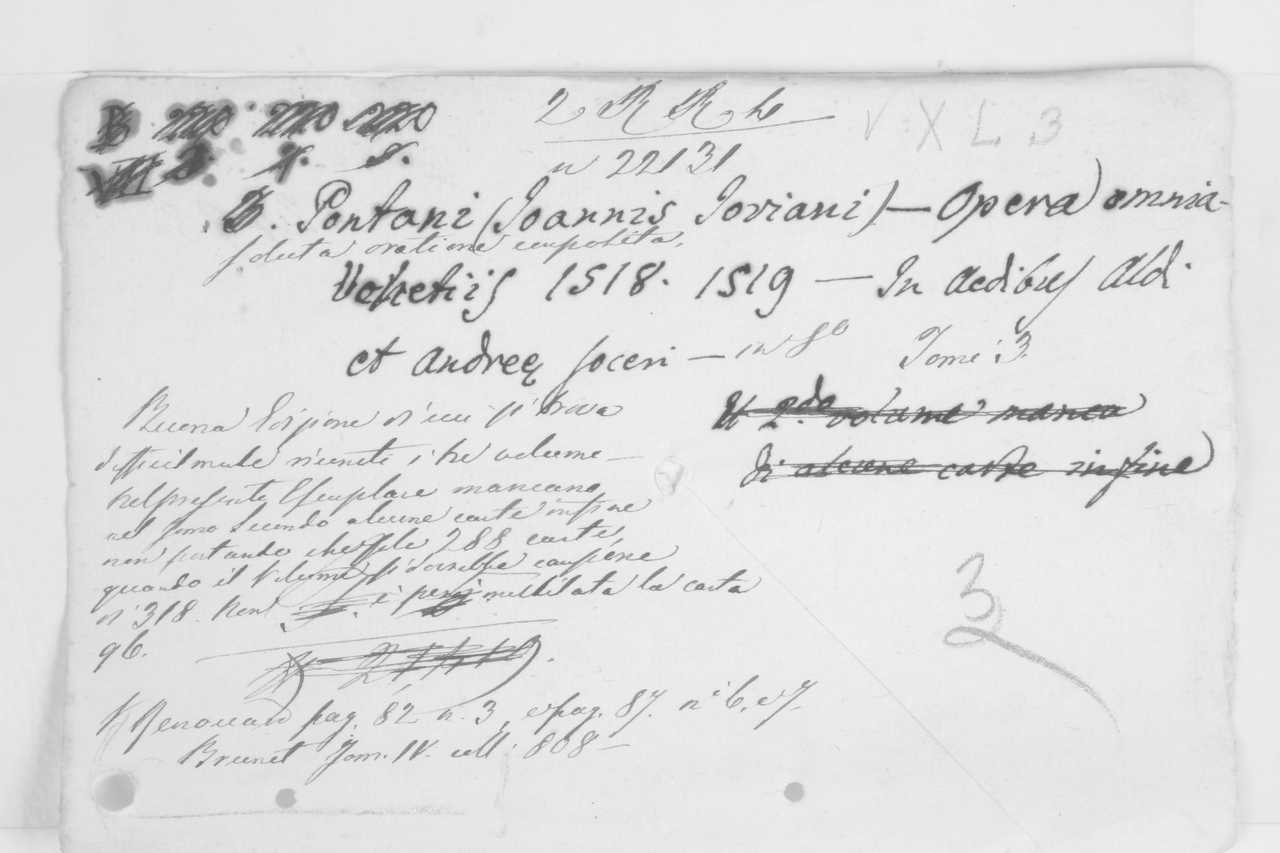 2 R R h
V X L 3
n 22131
B. Pontani (Joannis Joviani) — Opera omnia
soluta oratione composita.
Venetiis 1518. 1519 — In Aedibus Aldi
et Andreę soceri — in 8º Tome 3.
Il 2.do volume manca
di alcune carte in fine
Buona Edizione di cui si trova
difficilmente riuniti i tre volumi —
Nel presente Esemplare mancano
nel Tomo Secondo alcune carte in fine
non portando che sole 288 carte,
quando il Volume si dovrebbe comporre
di 318. è però mutilata la carta
96.
V. Renouard pag. 82 n. 3, e pag. 87. n.i 6, e 7.
Brunet Tom. IV. coll. 808 —
3